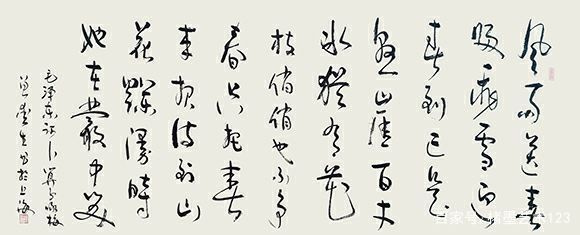 風雨送春
歸飛雪迎
春到已是
懸崖百丈
冰猶有花
枝俏俏也不争
春只把春
来报待到山
花爛漫時
她在叢中笑
毛澤東詞卜算子咏梅
书於上海
百家号
123